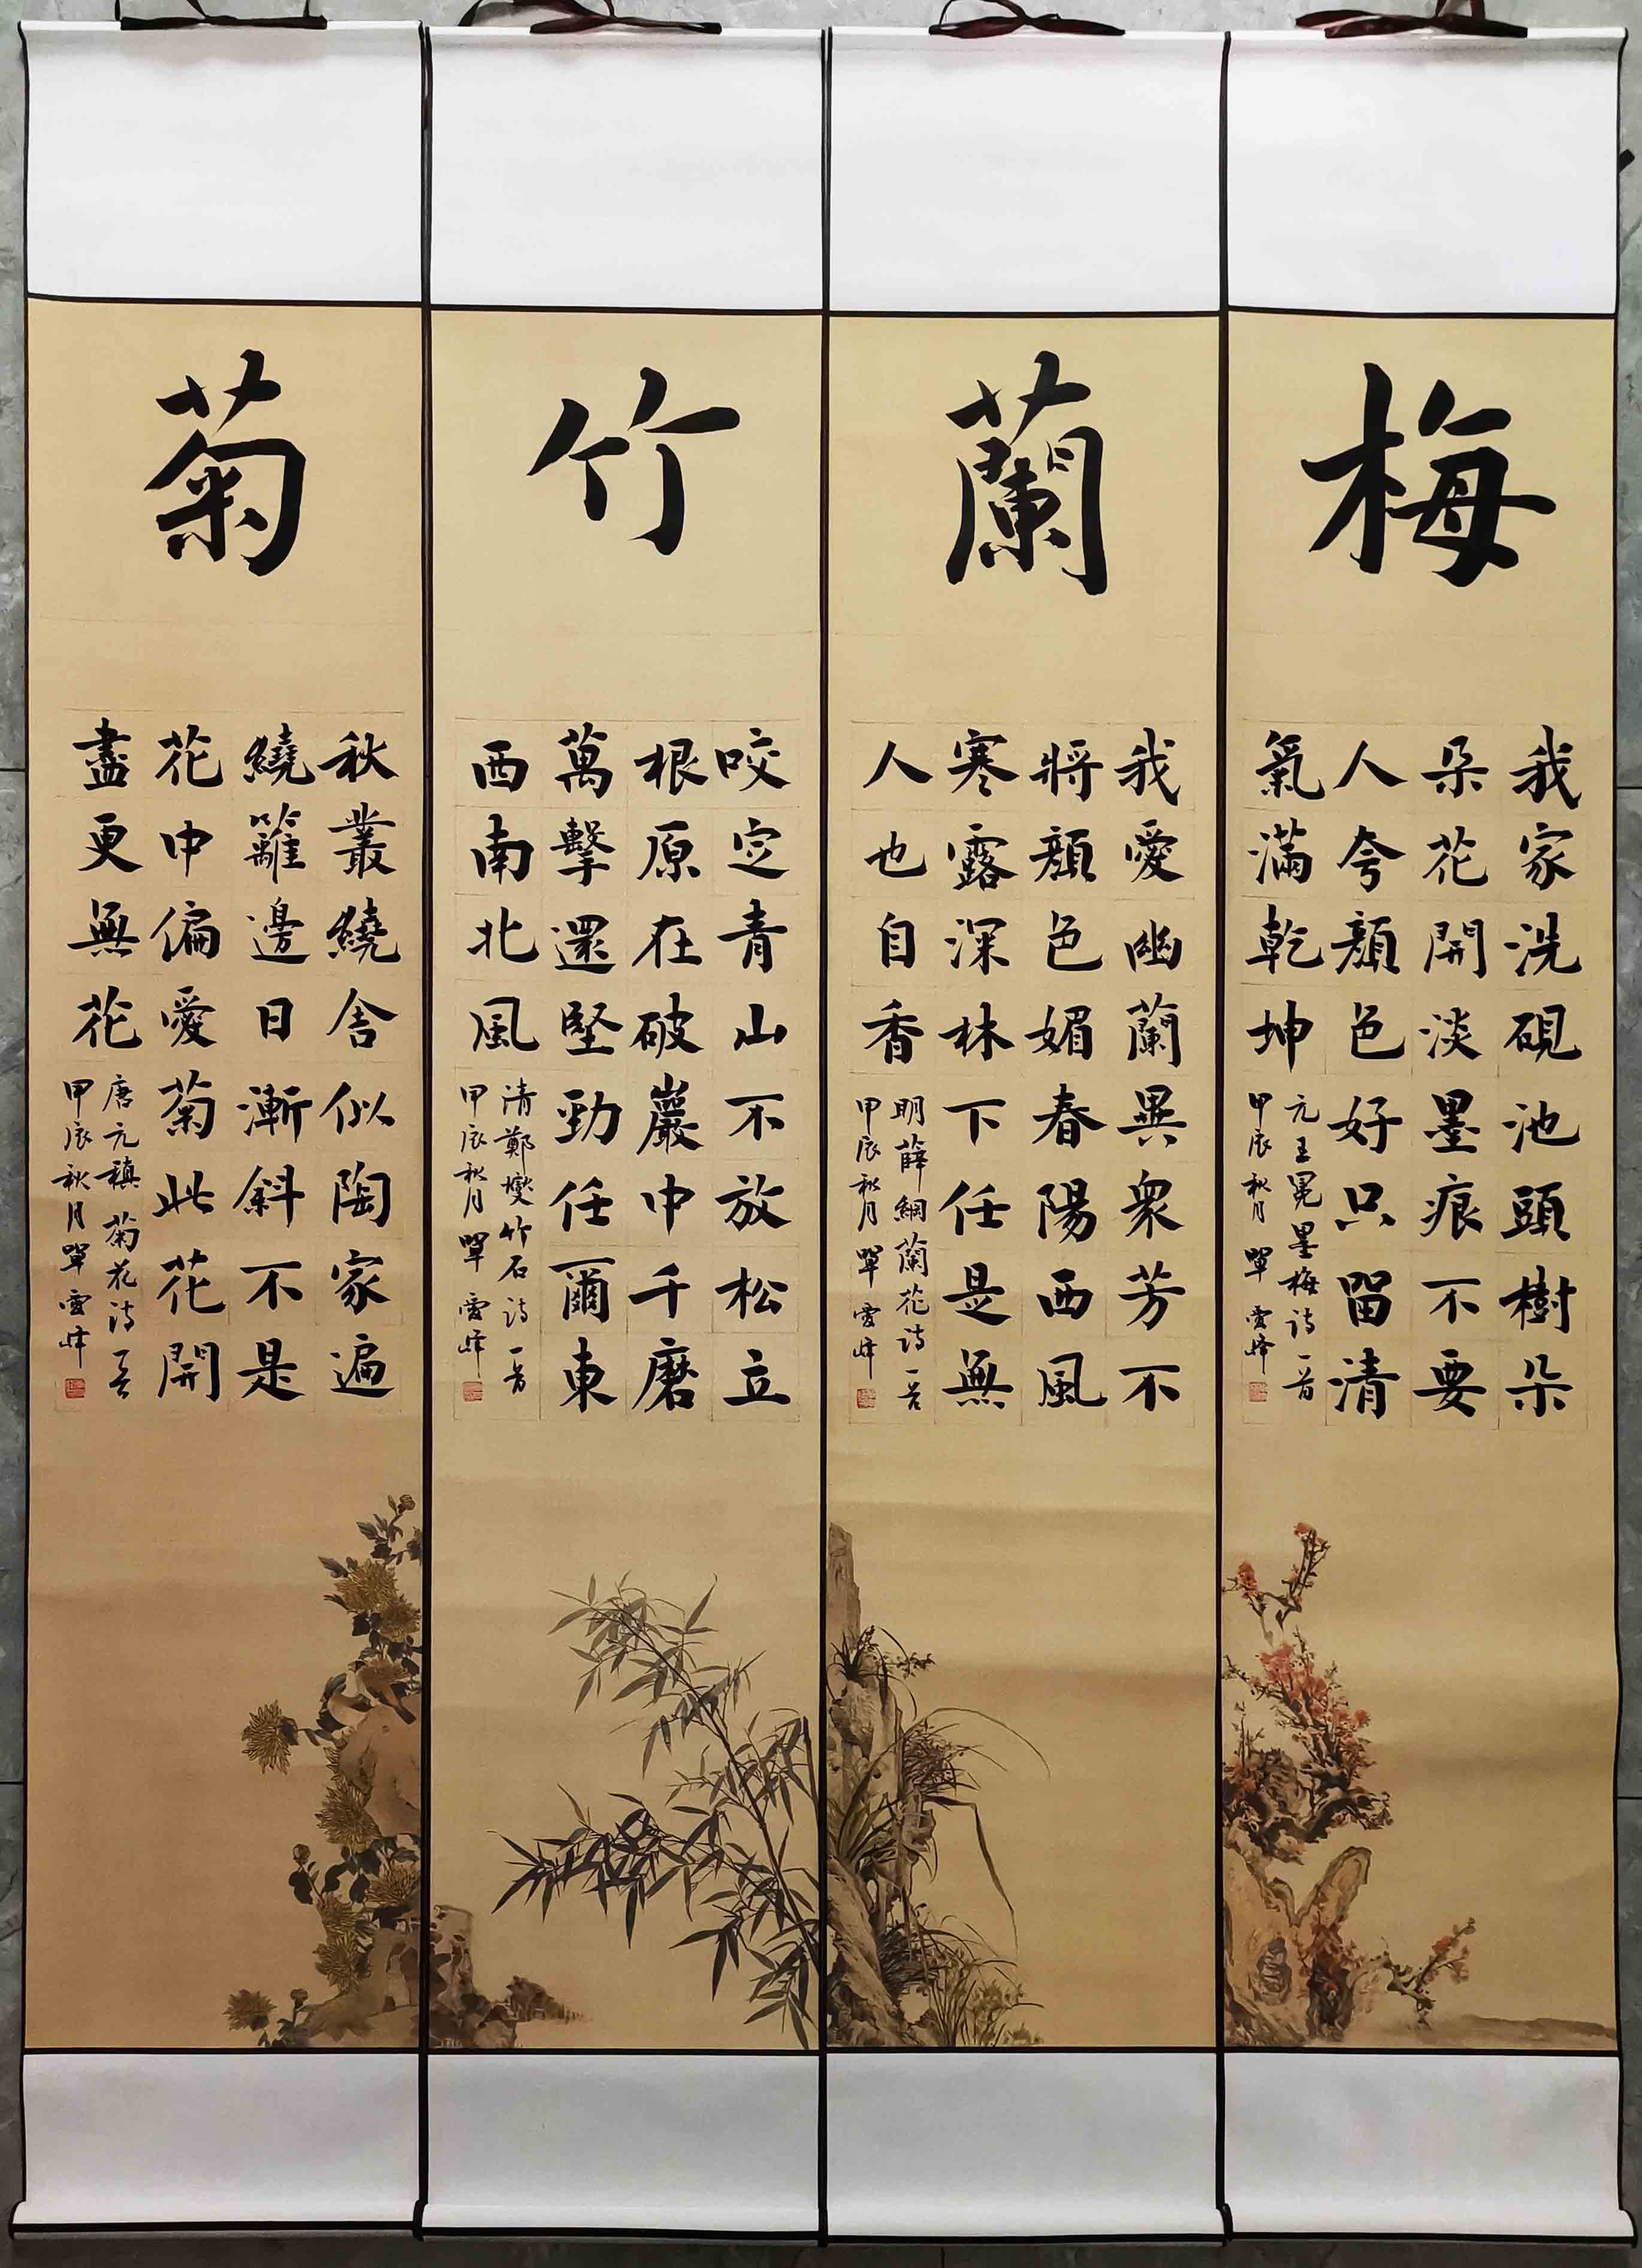 梅
我家洗硯池頭樹朵
朵花開淡墨痕不要
人夸顏色好只留清
氣滿乾坤
元王冕墨梅詩一首
甲辰秋月單雪峰
蘭
我愛幽蘭異衆芳不
將顏色媚春陽西風
寒露深林下任是無
人也自香
明薛網蘭花詩一首
甲辰秋月單雪峰
竹
咬定青山不放松立
根原在破巖中千磨
萬擊還堅勁任爾東
西南北風
清鄭燮竹石詩一首
甲辰秋月單雪峰
菊
秋叢繞舍似陶家遍
繞籬邊日漸斜不是
花中偏愛菊此花開
盡更無花
唐元稹菊花詩一首
甲辰秋月單雪峰